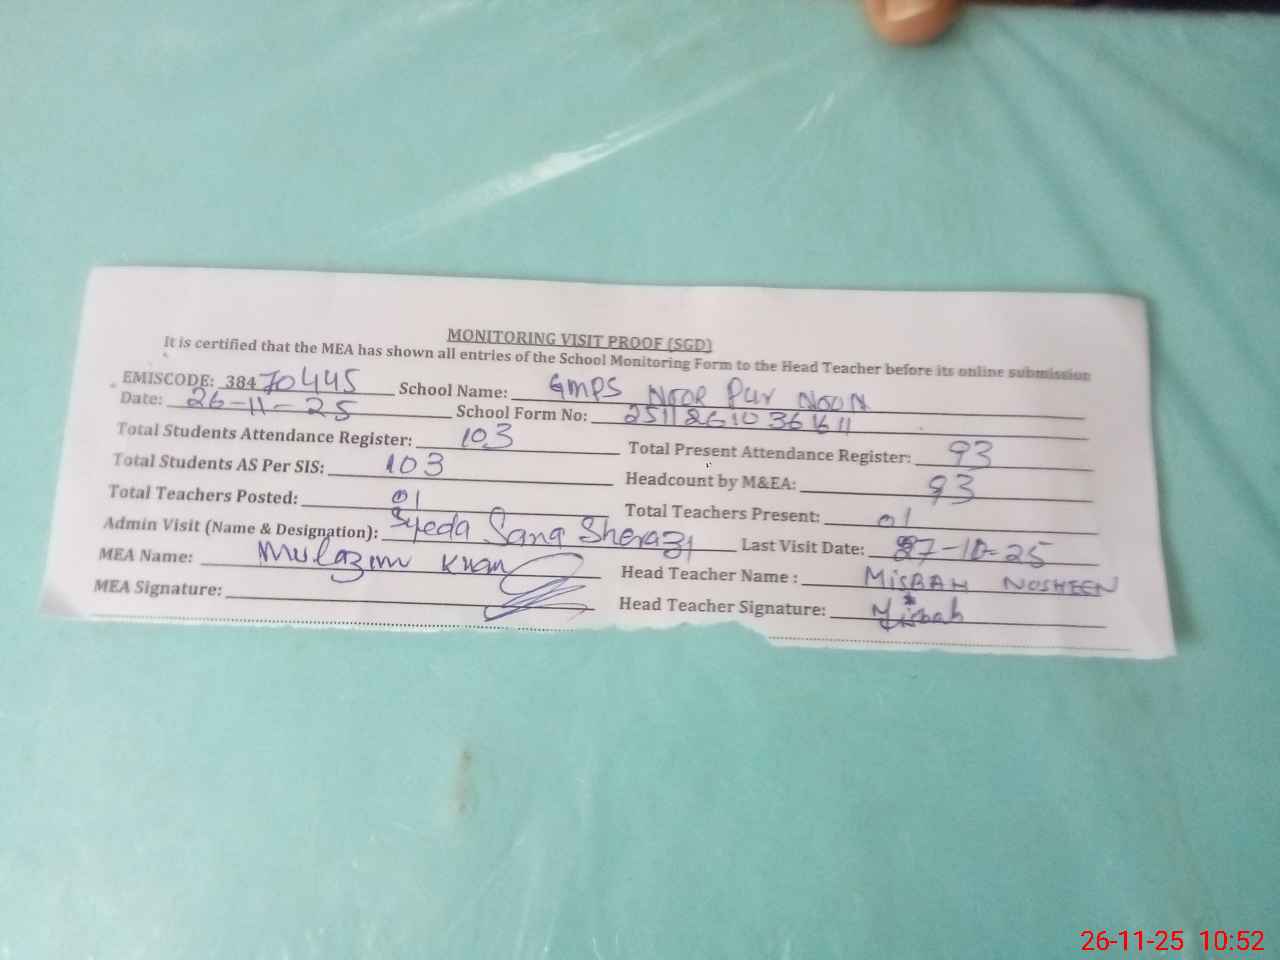 MONITORING VISIT PROOF (SGD)
It is certified that the MEA has shown all entries of the School Monitoring Form to the Head Teacher before its online submission
EMISCODE: 38470445 School Name: GMPS NOOR Pur NOON
Date: 26-11-25 School Form No: 25112610361611
Total Students Attendance Register: 103 Total Present Attendance Register: 93
Total Students AS Per SIS: 103 Headcount by M&EA: 93
Total Teachers Posted: 01 Total Teachers Present: 01
Admin Visit (Name & Designation): Syeda Sana Sherazi Last Visit Date: 27-10-25
MEA Name: Mulazim Khan Head Teacher Name : MISBAH NOSHEEN
MEA Signature: Head Teacher Signature: Misbah
26-11-25 10:52